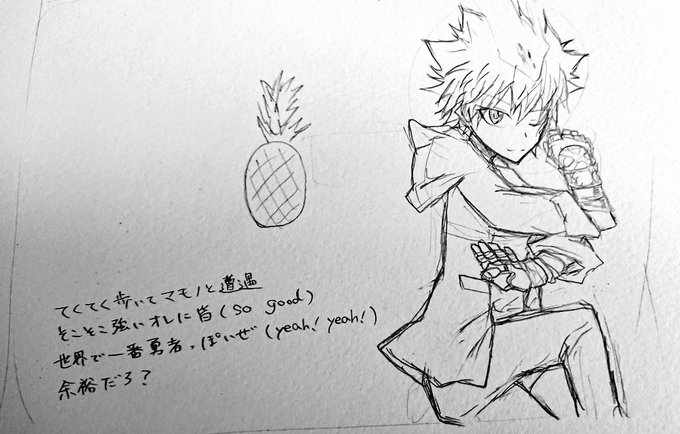 てくてく歩いてマモノと遭遇
そこそこ強いオレに皆(so good)
世界で一番勇者っぽいぜ(yeah! yeah!)
余裕だろ?